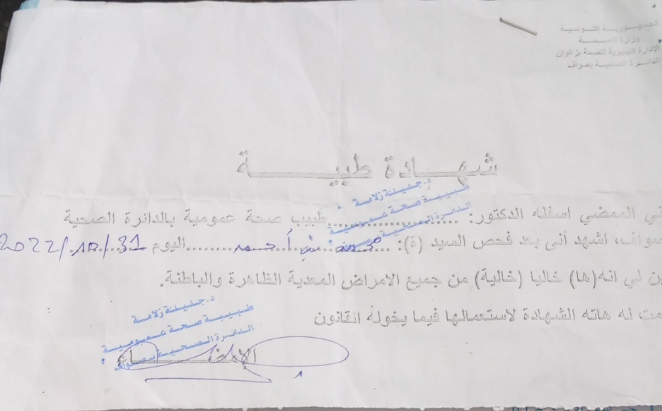 الجمهورية التونسية
وزارة الصحة
الإدارة الجهوية للصحة بزغوان
الدائرة الصحية بصواف
شهادة طبية
الممضي اسفله الدكتور: د. جليلة زلامة طبيب صحة عمومية بالدائرة الصحية
طبيبة صحة عمومية
صواف، اشهد أني بعد فحص السيد (ة): اليوم 2022/10/31
لي انه(ها) خاليا (خالية) من جميع الامراض المعدية الظاهرة والباطنة.
له هاته الشهادة لاستعمالها فيما يخوله القانون
د. جليلة زلامة
طبيبة صحة عمومية
الدائرة الصحية بصواف
الإمضاء